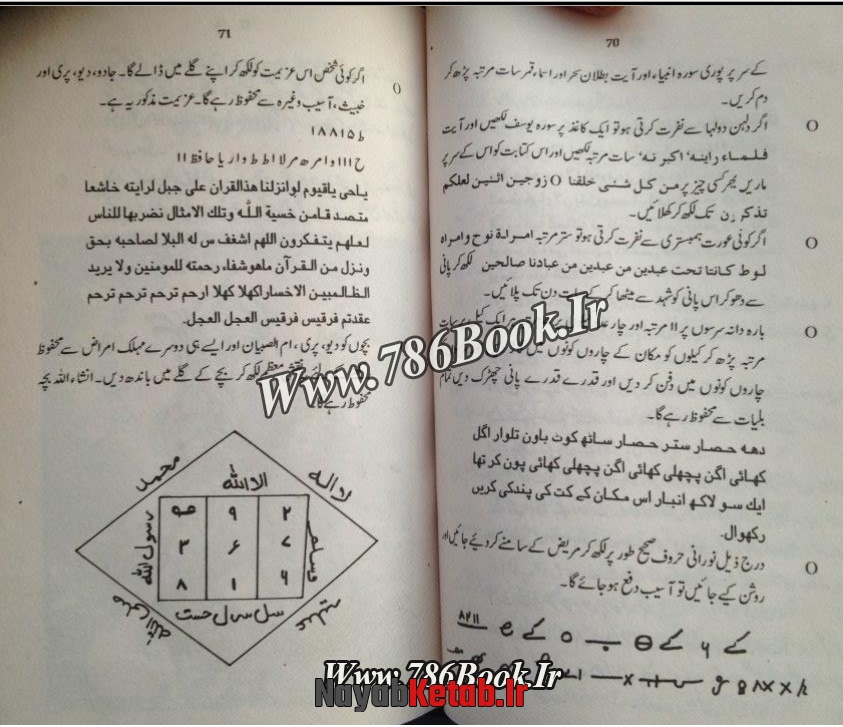 70
کے سر پر پوری سورہ انبیاء اور آیت بطلان سحر اور اسماء قمر سات مرتبہ پڑھ کر
دم کریں۔
O اگر دلہن دولہا سے نفرت کرتی ہو تو ایک کاغذ پر سورہ یوسف لکھیں اور آیت
فلماء راینہ' اکبر نہ' سات مرتبہ لکھیں اور اس کتابت کو اس کے سر پر
ماریں پھر کسی چیز پر من کل شئی خلقنا O زوجین اثنین لعلکم
تذکرن تک لکھ کر کھلائیں۔
O اگر کوئی عورت ہمبستری سے نفرت کرتی ہو تو ستر مرتبہ امراۃ نوح وامراہ
لوط کانتا تحت عبدین من عبدین من عبادنا صالحین لکھ کر پانی
سے دھو کر اس پانی کو شہد سے میٹھا کر کے سات دن تک پلائیں۔
O بارہ دانہ سرسوں پر ۱۱ مرتبہ اور چار ہر ایک کیل پر سات
مرتبہ پڑھ کر کیلوں کو مکان کے چاروں کونوں میں
چاروں کونوں میں دفن کر دیں اور قدرے قدرے پانی چھڑک دیں تمام
بلیات سے محفوظ رہے گا۔
دھہ حصار ستر حصار ساٹھ کوٹ باون تلوار اگل
کھائی اگن پچھلی کھائی اگن پچھلی کھائی پون کر تھا
ایک سو لاکھ انبار اس مکان کے کت کی پندکی کریں
رکھوال۔
O درج ذیل نورانی حروف صحیح طور پر لکھ کر مریض کے سامنے کر دیئے جائیں اور
روشن کیے جائیں تو آسیب دفع ہو جائے گا۔
71
O اگر کوئی شخص اس عزیمت کو لکھ کر اپنے گلے میں ڈالے گا۔ جادو، دیو، پری اور
خبیث، آسیب وغیرہ سے محفوظ رہے گا۔ عزیمت مذکور یہ ہے۔
ط ۱۸۸۱۵
ح ۱۱۱ وامرھ مرلا اط ط وار یا حافظ ۱۱
یاحی یاقیوم لوانزلنا هذا القران علی جبل لرایته خاشعا
متصد قامن خسیة اللہ وتلك الامثال نضربها للناس
لعلهم یتفکرون اللهم اشغف س له البلا لصاحبه بحق
ونزل من القرآن ماهوشفاء رحمته للمومنین ولا یرید
الظالمبین الاخسارا کهلا کهلا ارحم ترحم ترحم ترحم
عقدتم فرقیس فرقیس العجل العجل۔
بچوں کو دیو، پری، ام الصبیان اور ایسے ہی دوسرے مہلک امراض سے محفوظ
نقش معظم لکھ کر بچے کے گلے میں باندھ دیں۔ انشاء اللہ بچہ
محفوظ رہے گا۔
لا الہ
الا اللہ
محمد
رسول اللہ
صلی اللہ
علیہ
وسلم
۹ ۲
۳ ۶ ۷
۸ ۱ ۶
Www.786Book.Ir
Www.786Book.Ir
NayabKetab.Ir